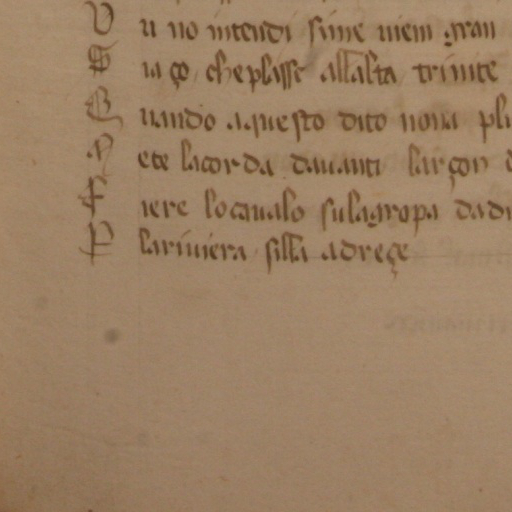 U u no intendi sime niem gran
S ia ço che plasse all alta trinite
Q uando aquesto dito nona pli
M ete la corda dauanti larçon d
F iere lo caualo su la gropa dadi
P lariuiera silla adreçe